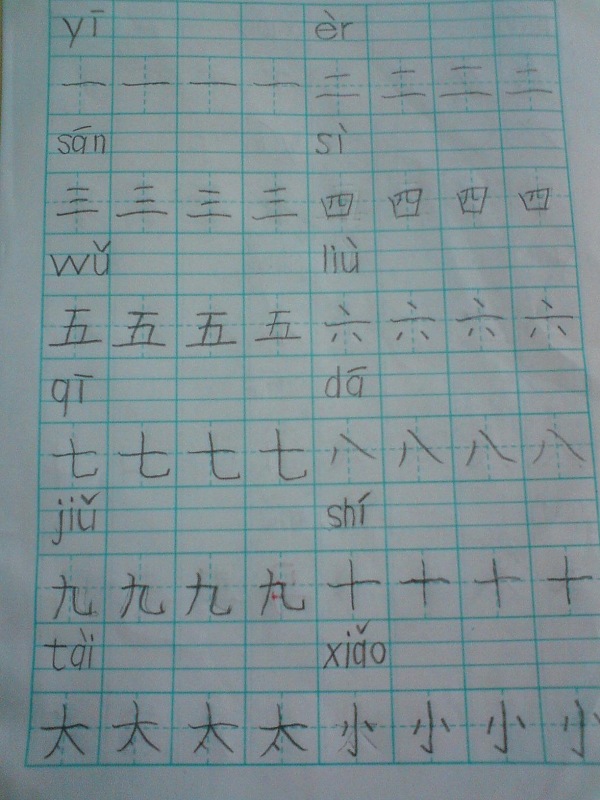 yī èr
一 一 一 一 二 二 二 二
sān sì
三 三 三 三 四 四 四 四
wǔ liù
五 五 五 五 六 六 六 六
qī dā
七 七 七 七 八 八 八 八
jiǔ shí
九 九 九 九 十 十 十 十
tài xiǎo
太 太 太 太 小 小 小 小